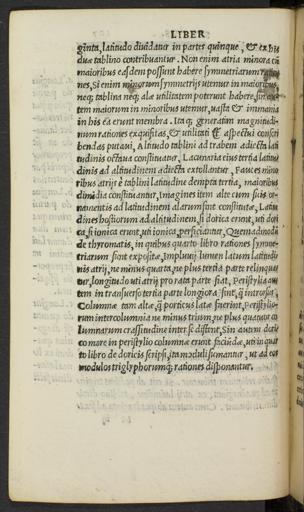 LIBER
ginta, latitudo diuidatur in partes quinque, & ex his
duæ tablino contribuantur. Non enim atria minora cũ
maioribus easdem possunt habere symmetriarum ratio
nes, si enim minorum symmetrijs utemur in maioribus,
neq; tablina neq; alæ utilitatem poterunt habere, sin au
tem maiorum in minoribus utemur, uasta & immania
in his ea erunt membra. Itaq; generatim magnitudi
num rationes exquisitas, & utilitati & aspectui conscri
bendas putaui, Altitudo tablini ad trabem adiecta lati
tudinis octaua constituatur. Lacunaria eius tertia latitu
dinis ad altitudinem adiecta extollantur, Fauces mino
ribus atrijs è tablini latitudine dempta tertia, maioribus
dimidia constituantur, Imagines item alte cum suis or
namentis ad latitudinem alarum sint constitutæ, Latitu
dines hostiorum ad altitudinem, si dorica erunt, uti dori
ca, si ionica erunt, uti ionica, perficiantur, Quemadmodũ
de thyromatis, in quibus quarto libro rationes symme
triarum sunt expositæ, Impluuij lumen latum latitudi
nis atrij, ne minus quarta, ne plus tertia parte relinqua
tur, longitudo uti atrij pro rata parte fiat, Peristylia au
tem in transuerso tertia parte longiora sint, q̃ introrsus,
Columnæ tam altæ, q̃ porticus latæ fuerint, Peristylio-
rum intercolumnia ne minus trium, ne plus quatuor co
lumnarum crassitudine inter se distent, Sin autem dori
co more in peristylio columnæ erunt faciũdæ, uti in quar
to libro de doricis scripsi, ita moduli sumantur, ut ad eos
modulos triglyphorumq; rationes disponantur.